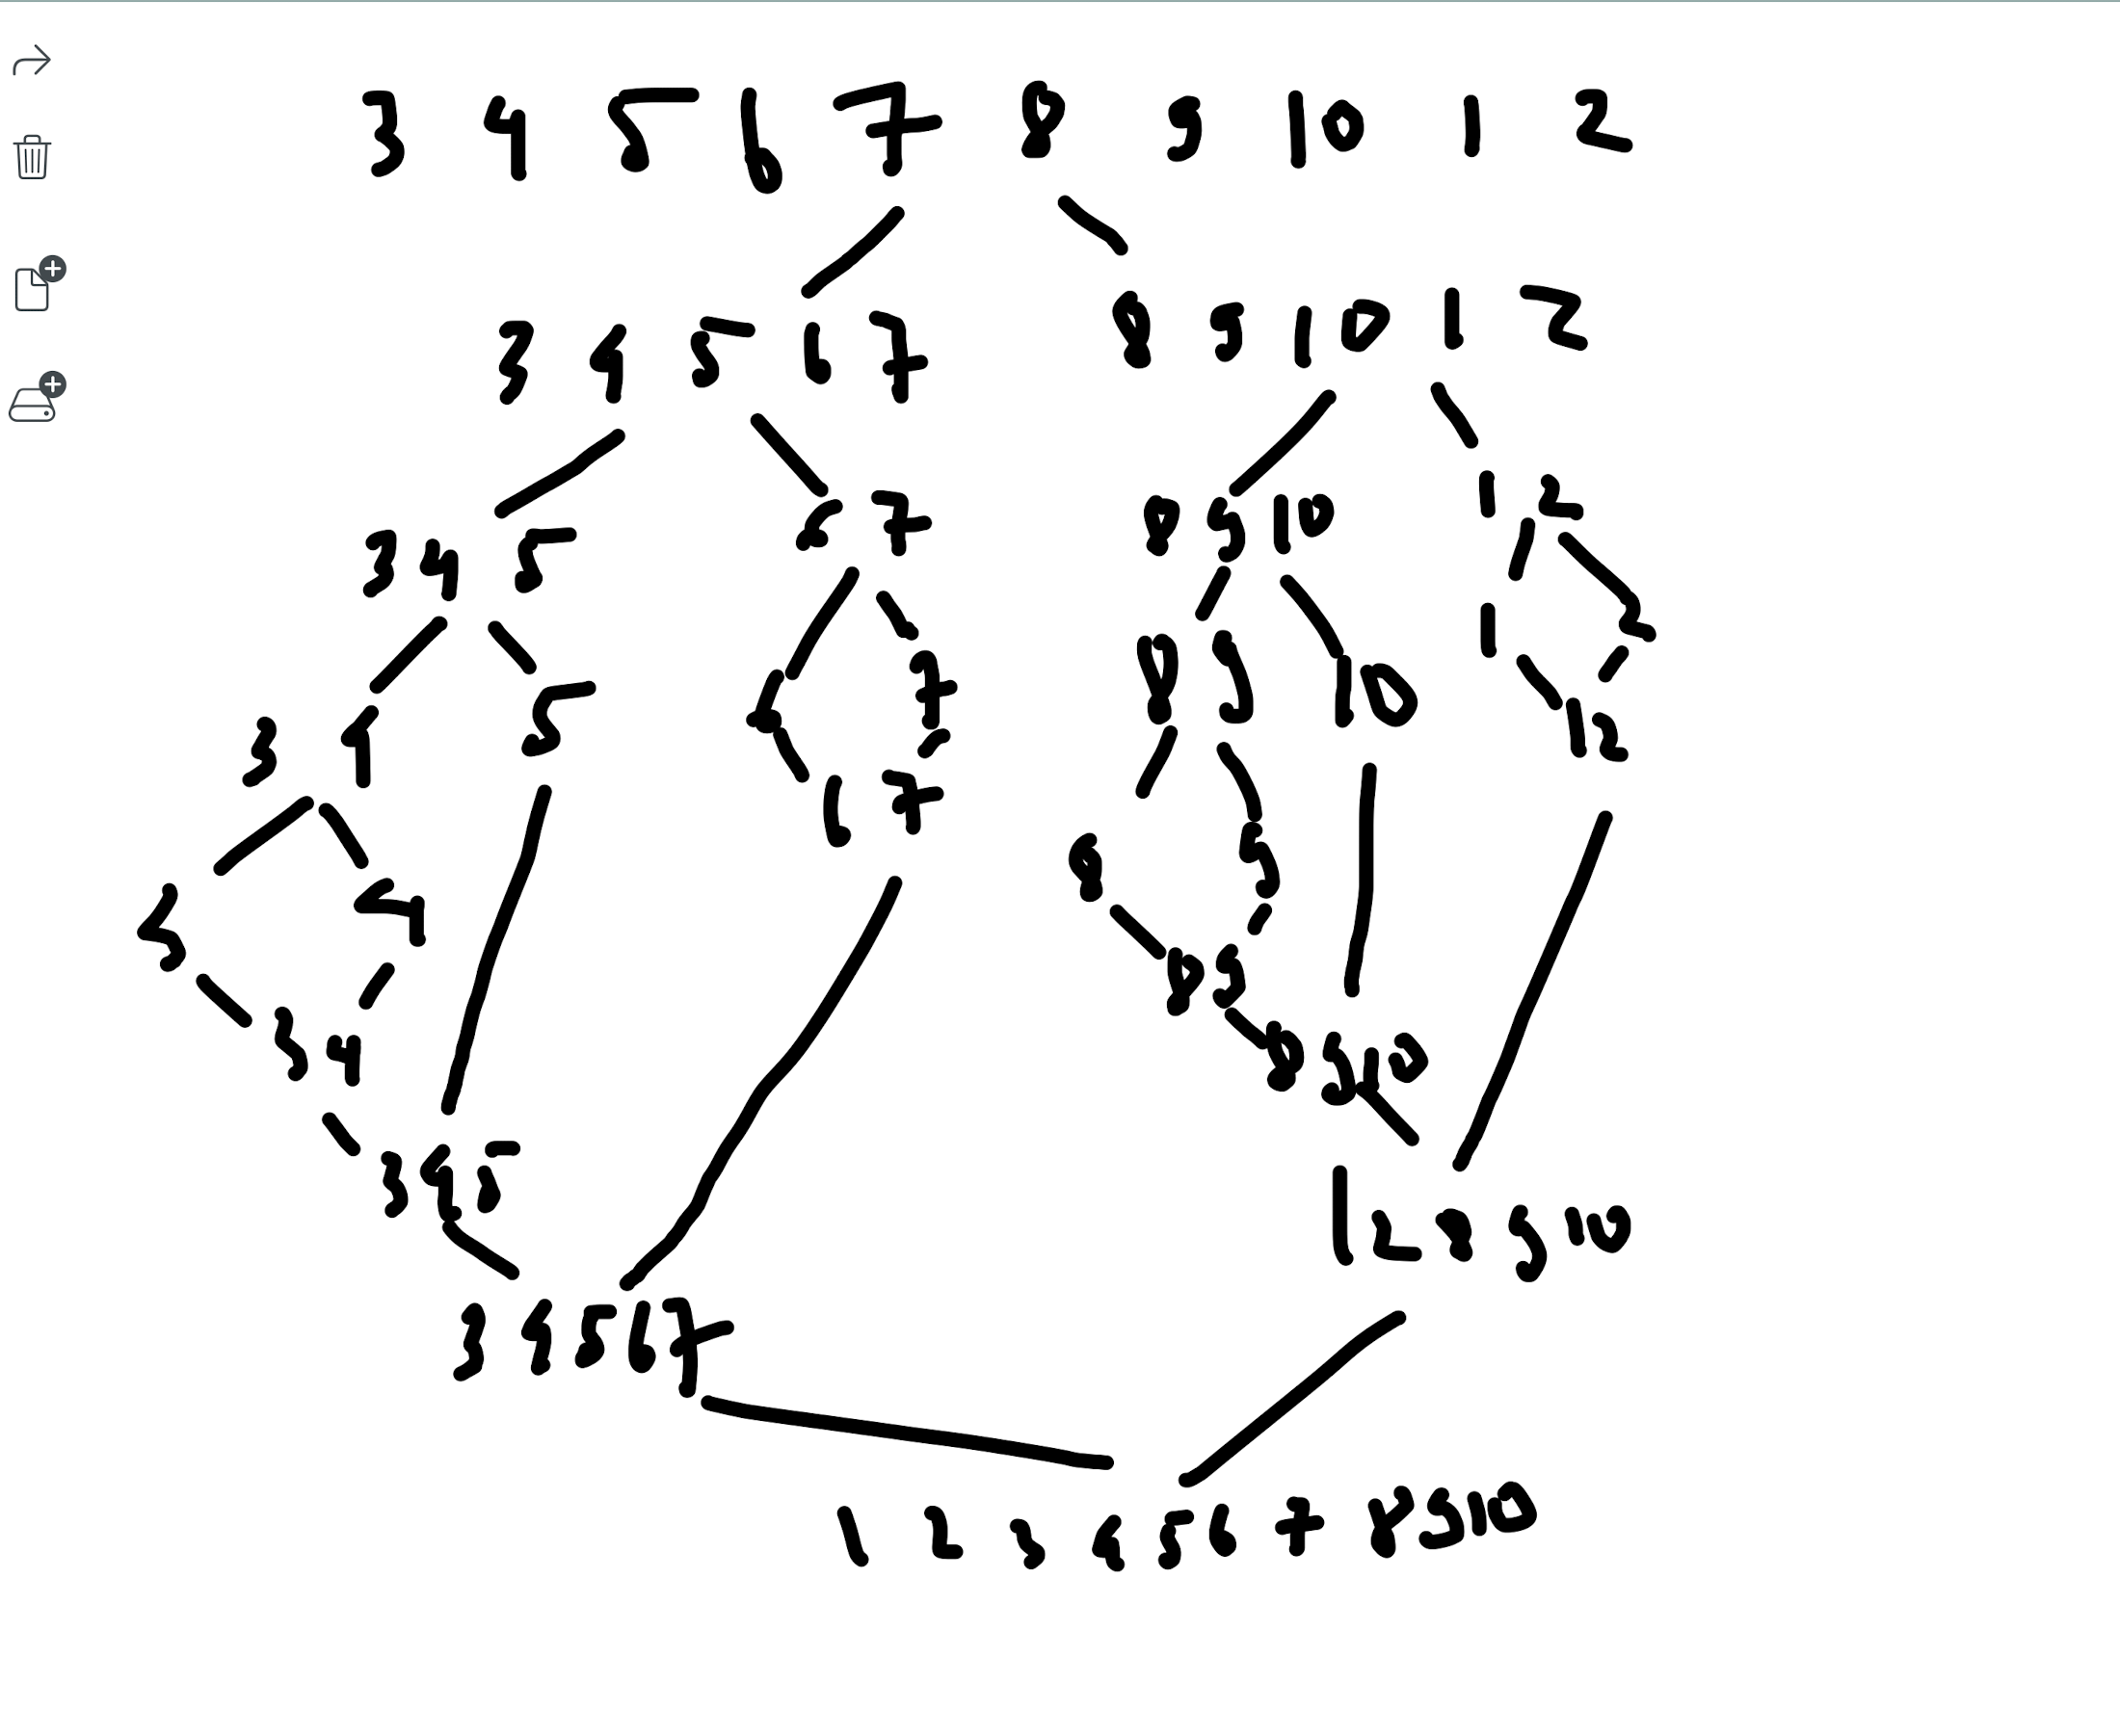 3 4 5 6 7 8 9 10 1 2
3 4 5 6 7 8 9 10 1 2
3 4 5 6 7 8 9 10 1 2
3 4 5 6 7 8 9 10 1 2
3 4 6 7 8 9 1 2
3 4 8 9
3 4 5 8 9 10
1 2 8 9 10
3 4 5 6 7
1 2 3 4 5 6 7 8 9 10